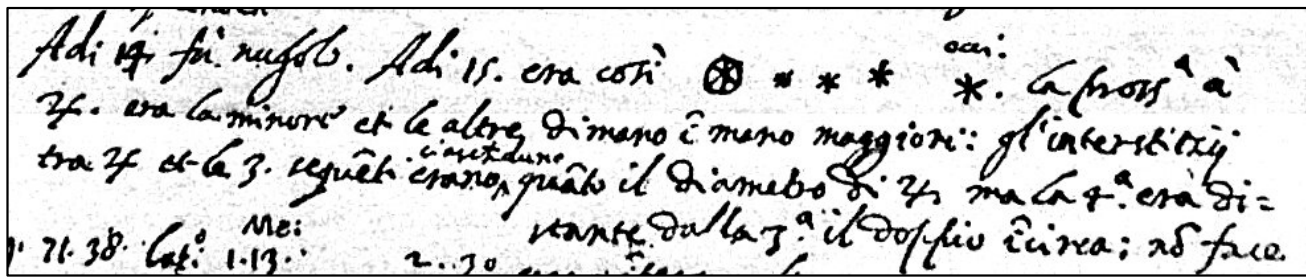 Adi 14. fù nugolo. Adi 15. era così * * * * occi: la pross.ª à
♃. era la minore et le altre di mano ĩ mano maggiori: gl'interstizij
tra ♃ et le 3. seguẽti erano ciascheduno quãto il diametro di ♃, ma la 4.ª era di=
stante dalla 3.ª il doppio ĩcirca; nõ face
71.38. lat.º Me: 1.13. 2..30